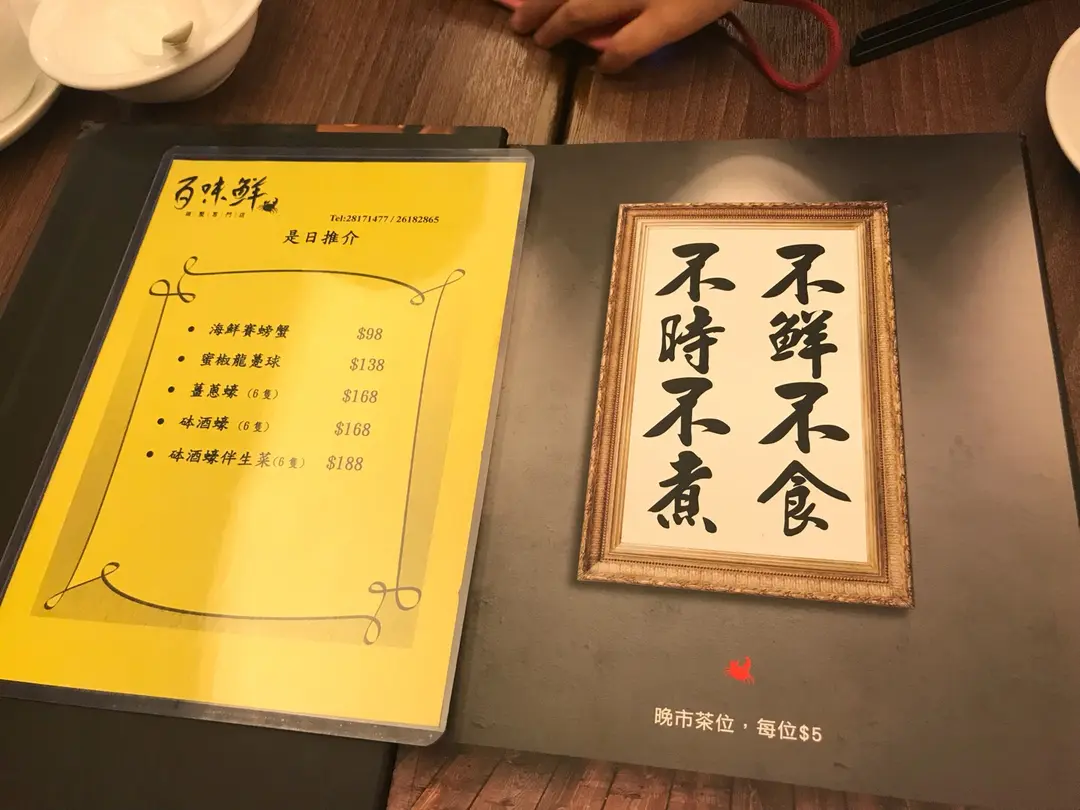 百味鮮
Tel:28171477 / 26182865
是日推介
• 海鮮賽螃蟹 $98
• 蜜椒龍躉球 $138
• 薑蔥蠔 (6隻) $168
• 砵酒蠔 (6隻) $168
• 砵酒蠔伴生菜(6隻) $188
不鮮不食
不時不煮
晚市茶位，每位$5